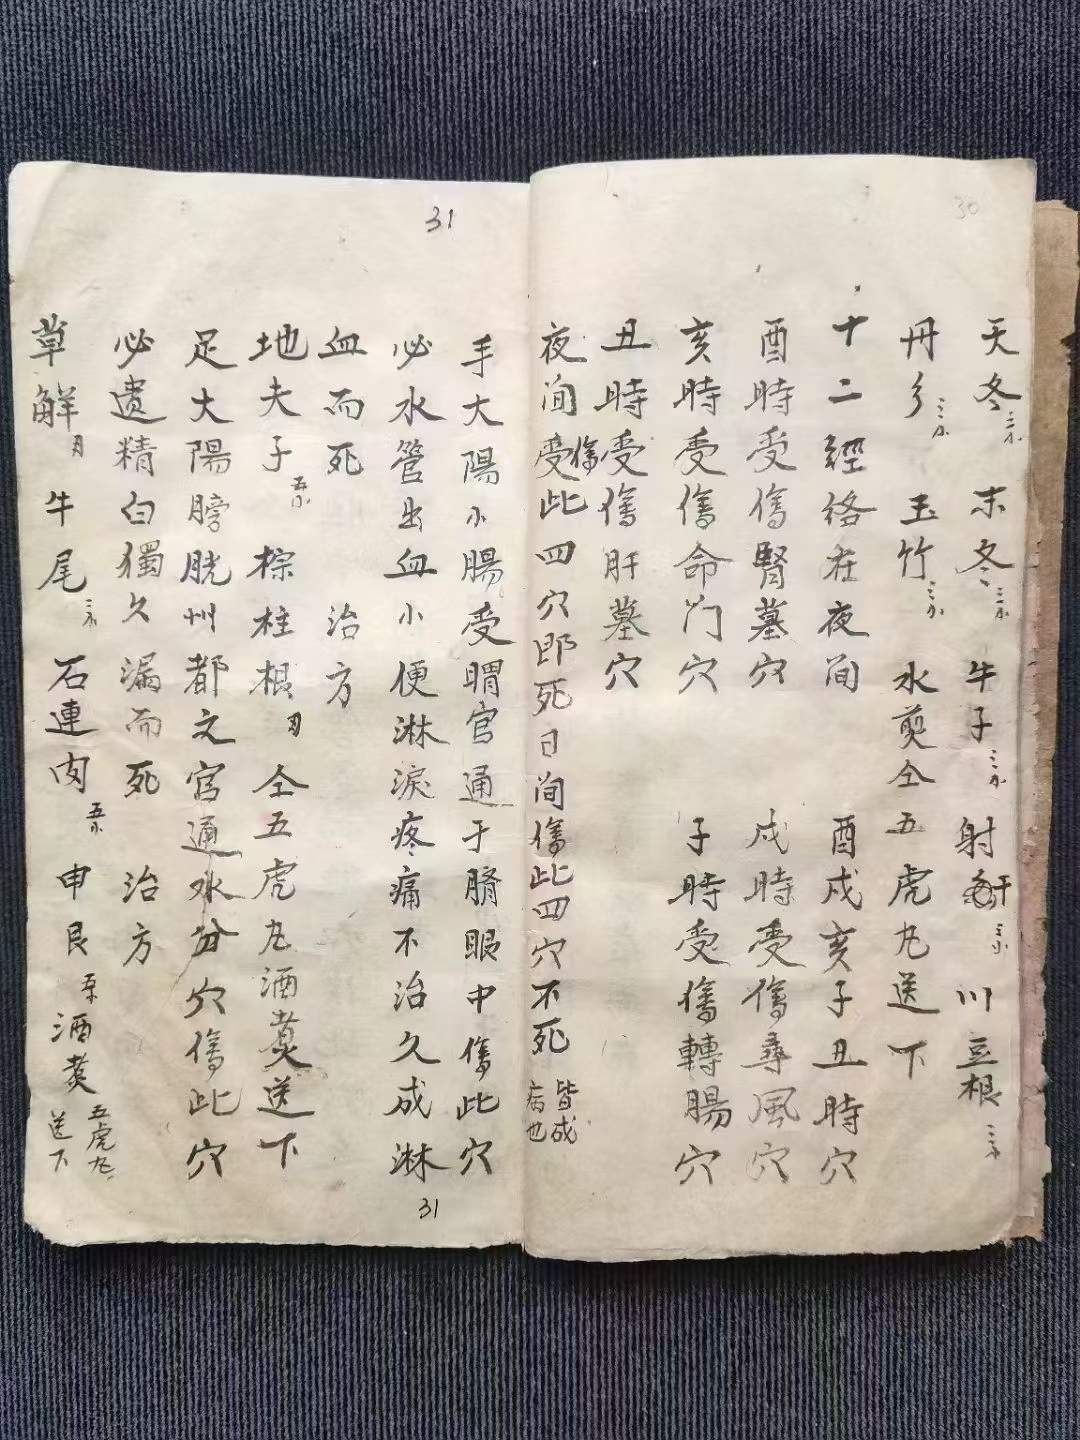 30
天冬 三不 末冬 三不 牛子 三不 射干 三不 川豆根 三不
丹彡 三不 玉竹 三不 水煎仝五虎丸送下
十二經络在夜间 酉戌亥子丑時穴
酉時受傷腎墓穴 戌時受傷尋風穴
亥時受傷命门穴 子時受傷轉腸穴
丑時受傷肝墓穴
夜间受傷此四穴即死日间傷此四穴不死 皆成病也
31
手大陽小腸受謂官通于臍眼中傷此穴
必水管出血小便淋淚疼痛不治久成淋
血而死 治方
地夫子 五不 棕柱根 刃 仝五虎丸酒煑送下
足大陽膀胱州都之官通水分穴傷此穴
必遗精白獨久漏而死 治方
草解 刃 牛尾 三不 石連肉 五不 申艮 五不 酒煑 五虎丸送下
31